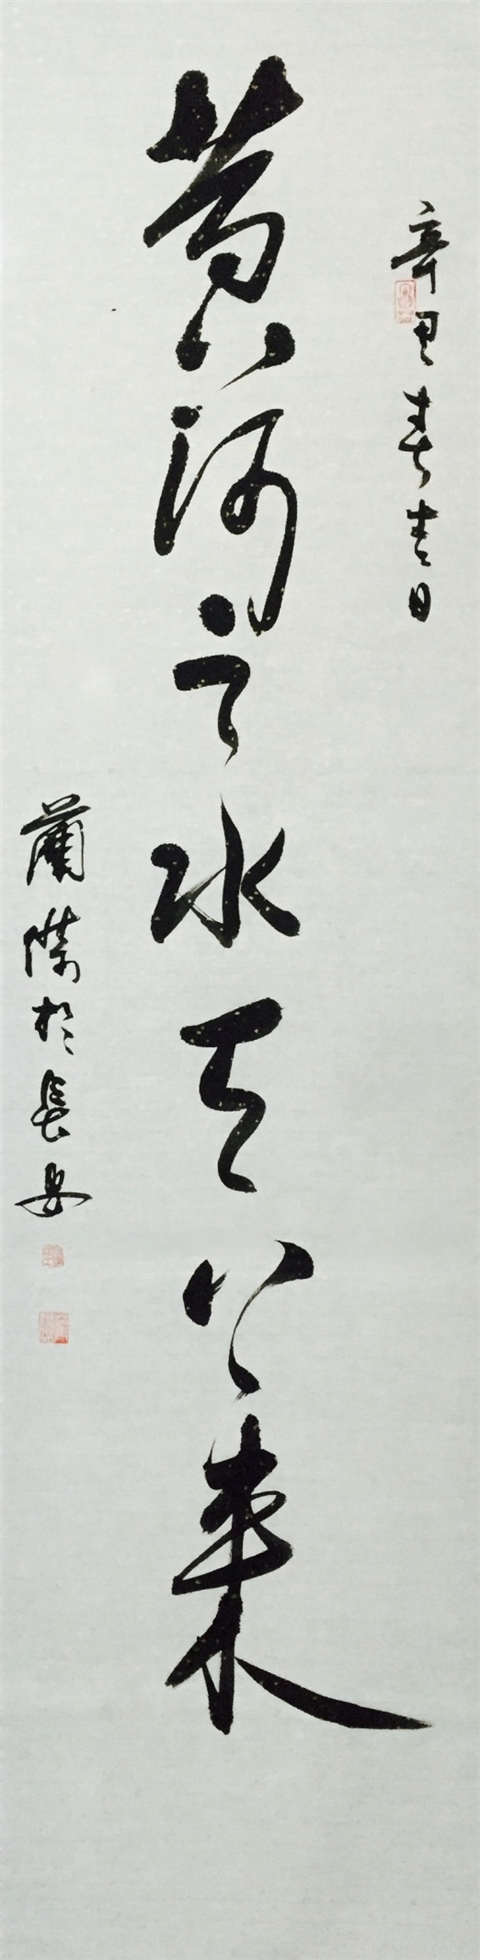 辛丑春吉日
黄河之水天上来
蘭於長安